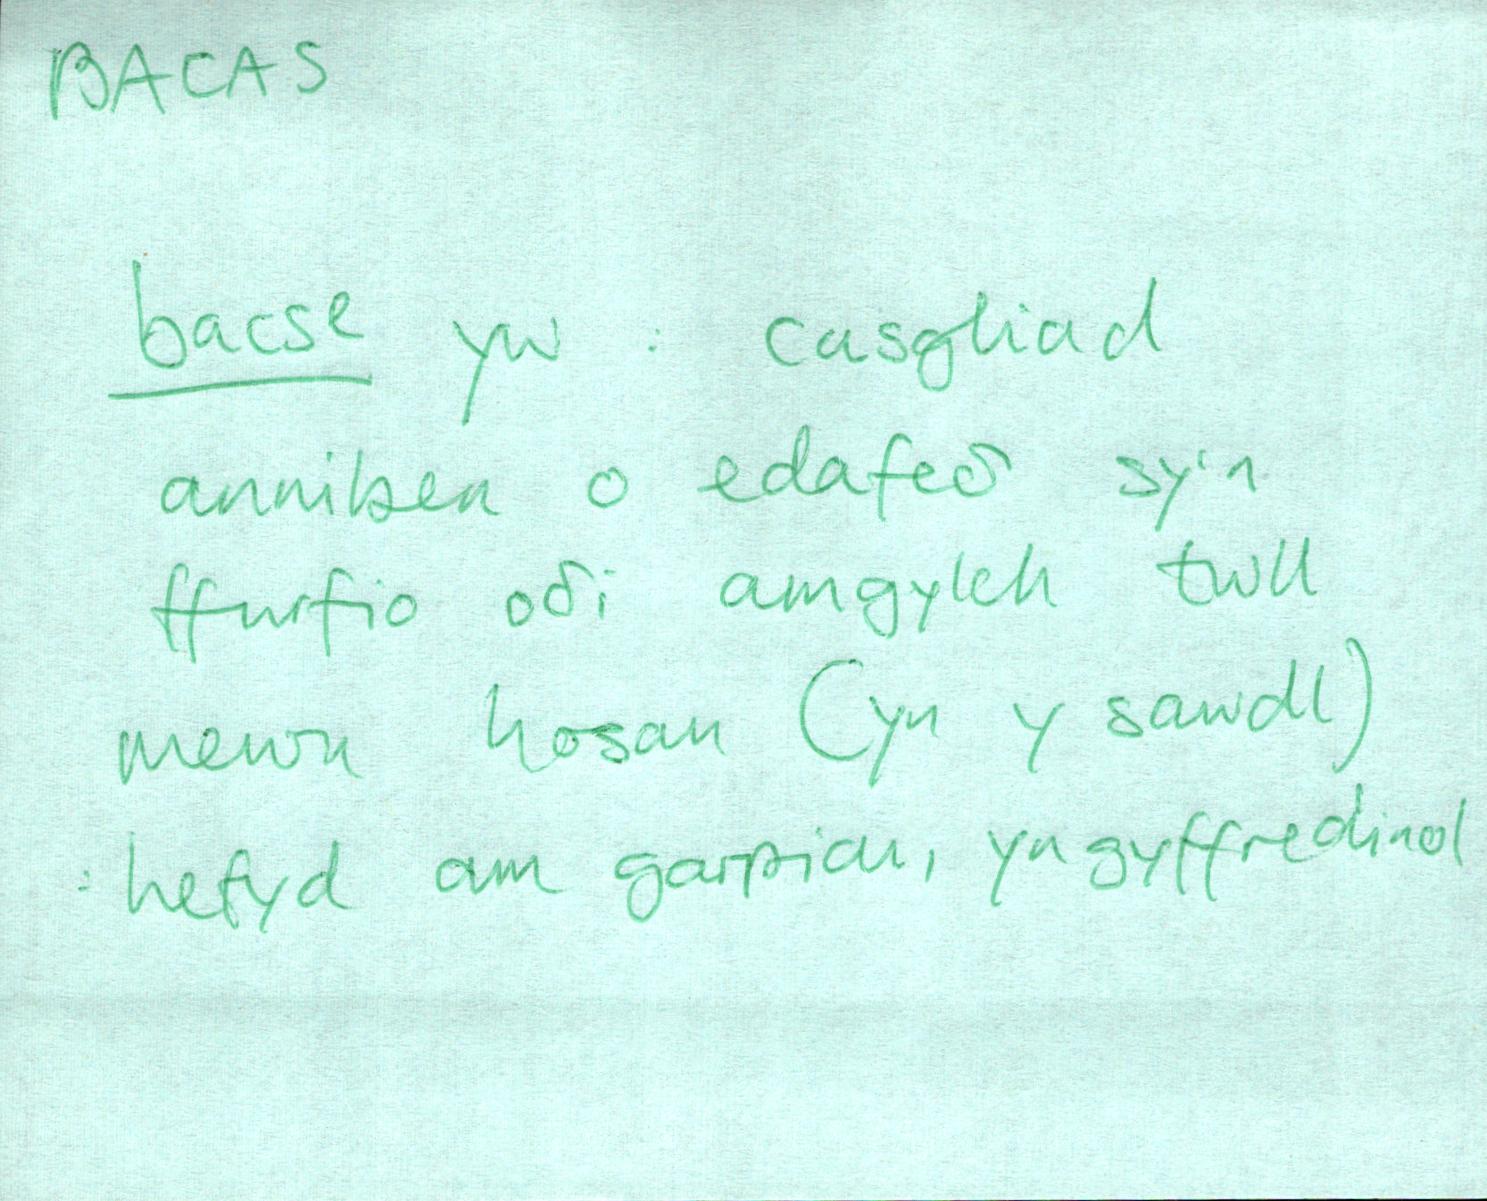 BACAS
bacse yw : casgliad
anniben o edafeδ sy'n
ffurfio oδi amgylch twll
mewn hosan (yn y sawdl)
: hefyd am garpiau, yn gyffredinol